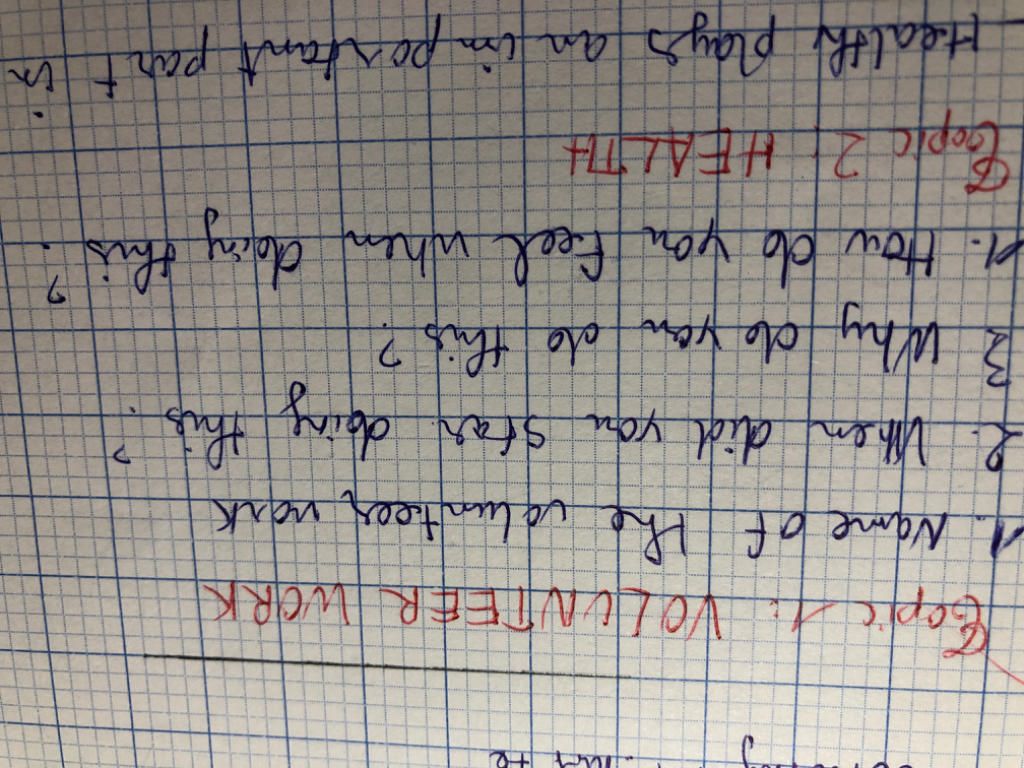 Topic 1: VOLUNTEER WORK
1. Name of the volunteer work
2. When did you star doing this ?
3 Why do you do this ?
4. How do you feel when doing this ?
Topic 2: HEALTH
Health plays an important part in